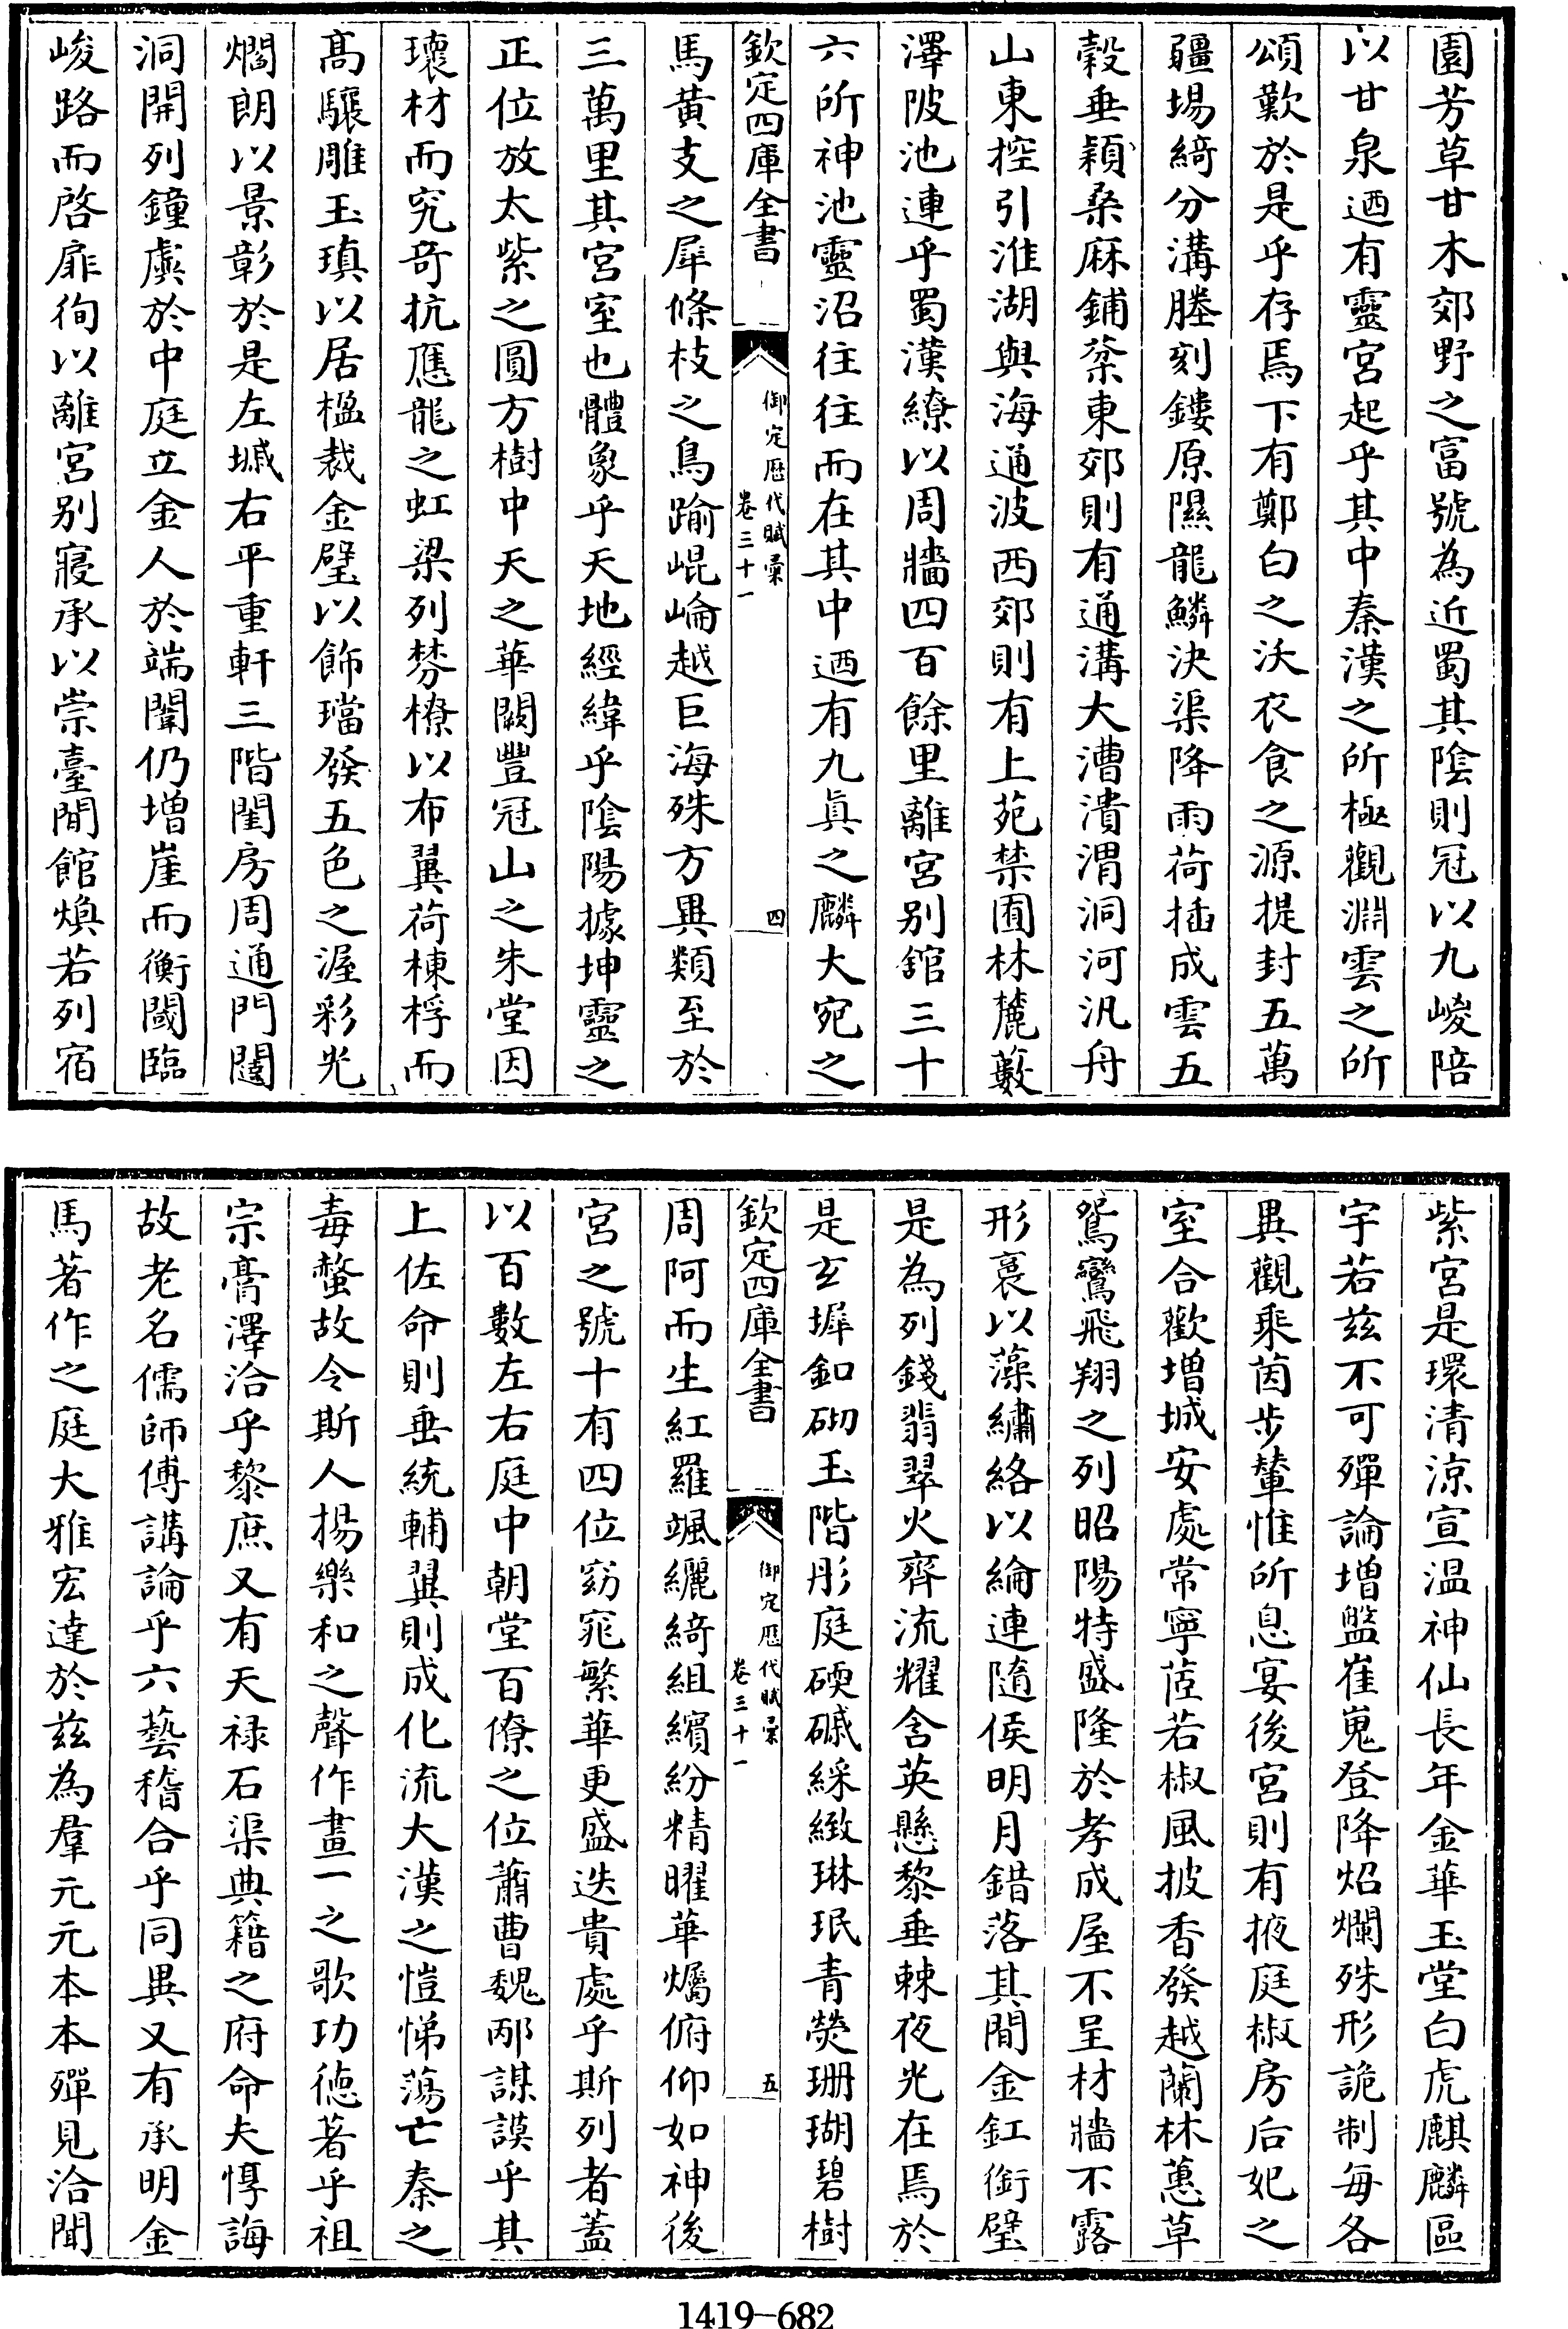 園芳草甘木郊野之富號為近蜀其陰則冠以九嵕陪
以甘泉迺有靈宮起乎其中秦漢之所極觀淵雲之所
頌歎於是乎存焉下有鄭白之沃衣食之源提封五萬
疆埸綺分溝塍刻鏤原隰龍鱗決渠降雨荷插成雲五
穀垂穎桑麻鋪棻東郊則有通溝大漕潰渭洞河汎舟
山東控引淮湖與海通波西郊則有上苑禁囿林麓藪
澤陂池連乎蜀漢繚以周牆四百餘里離宮别舘三十
六所神池靈沼往往而在其中迺有九真之麟大宛之
欽定四庫全書
御定歷代賦彙
卷三十一
四
馬黃支之犀條枝之鳥踰崐崘越巨海殊方異類至於
三萬里其宮室也體象乎天地經緯乎陰陽據坤靈之
正位放太紫之圓方樹中天之華闕豐冠山之朱堂因
瓌材而究竒抗應龍之虹梁列棼橑以布翼荷棟桴而
髙驤雕玉瑱以居楹裁金璧以飾璫發五色之渥彩光
爓朗以景彰於是左墄右平重軒三階閨房周通門闥
洞開列鐘虡於中庭立金人於端闈仍增崖而衡閾臨
峻路而啓扉徇以離宮别寢承以崇臺閒館煥若列宿
紫宮是環清涼宣温神仙長年金華玉堂白虎麒麟區
宇若兹不可殫論增盤崔嵬登降炤爛殊形詭制每各
異觀乘茵步輦惟所息宴後宮則有掖庭椒房后妃之
室合歡增城安處常寧茝若椒風披香發越蘭林蕙草
鴛鸞飛翔之列昭陽特盛隆於孝成屋不呈材牆不露
形裛以藻繡絡以綸連隨侯明月錯落其間金釭銜璧
是為列錢翡翠火齊流耀含英懸黎垂棘夜光在焉於
是玄墀釦砌玉階彤庭碝磩綵緻琳珉青熒珊瑚碧樹
欽定四庫全書
御定歷代賦彙
卷三十一
五
周阿而生紅羅颯纚綺組繽紛精曜華燭俯仰如神後
宮之號十有四位窈窕繁華更盛迭貴處乎斯列者蓋
以百數左右庭中朝堂百僚之位蕭曹魏邴謀謨乎其
上佐命則垂統輔翼則成化流大漢之愷悌蕩亡秦之
毒螫故令斯人揚樂和之聲作畫一之歌功徳著乎祖
宗膏澤洽乎黎庶又有天禄石渠典籍之府命夫惇誨
故老名儒師傅講論乎六藝稽合乎同異又有承明金
馬著作之庭大雅宏達於兹為羣元元本本殫見洽聞
1419-682